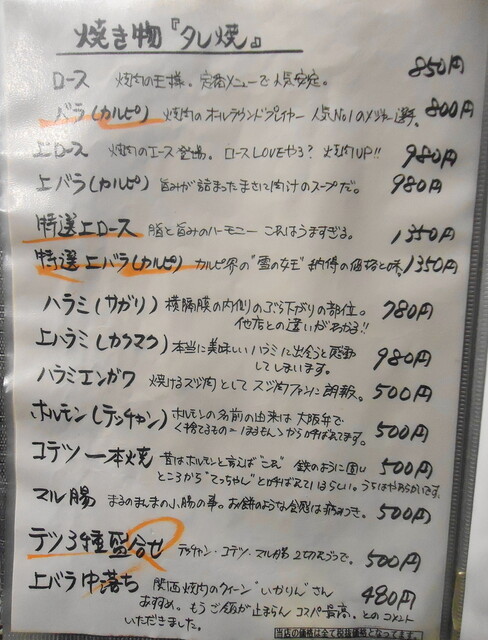 焼き物『タレ焼』
ロース 焼肉の王様。定番メニューで人気安定。 850円
バラ(カルビ) 焼肉のオールラウンドプレイヤー 人気No1のメジャー選。 800円
上ロース 焼肉のエース登場。ロースLOVEやろ? 焼肉UP!! 980円
上バラ(カルビ) 旨みが詰まったまさに肉汁のスープだ。 980円
特選上ロース 脂と旨みのハーモニー これはうますぎる。 1350円
特選上バラ(カルビ) カルビ界の"雪の女王" 納得の価格と味。 1350円
ハラミ(サガリ) 横隔膜の内側のぶら下がりの部位。 780円
他店との違いがわかる!!
上ハラミ(カクマク) 本当に美味しいハラミに出会うと感動 980円
してしまいます。
ハラミエンガワ 焼けるスジ肉として スジ肉ファンに朗報。 500円
ホルモン(テッチャン) ホルモンの名前の由来は大阪弁で 500円
く捨てるもの=ほるもんから呼ばれてます。
コテツ一本焼 昔はホルモンと言えば"これ" 鉄のように固い 500円
ところから"てっちゃん"とよばれているらしい。うちはやわらかいです。
マル腸 まるのまんまの小腸の事。お餅のような食感は病みつき。 500円
テツ3種盛合せ テッチャン・コテツ・マル腸 2切れづつで。 500円
上バラ中落ち 関西焼肉のクイーン"いかりん"さん 480円
おすすめ。もうご飯が止まらん コスパ最高。とのコメント
いただきました。
当店の価格は全て税抜価格となってます。